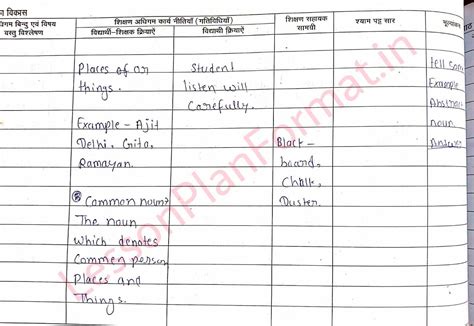 का विकास
शिक्षण अधिगम कार्य नीतियाँ (गतिविधियाँ)
धिगम बिन्दु एवं विषय
वस्तु विश्लेषण
विद्यार्थी-शिक्षक क्रियाऐं
विद्यार्थी क्रियाऐं
शिक्षण सहायक
सामग्री
श्याम पट्ट सार
Places of or
things.
Example - Ajit
Delhi, Gita,
Ramayan.
Common noun?
The noun
which denotes
Commen person
Places and
Things.
Student
listen will
Carefully.
Black-
board,
Chalk,
Duster.
tell som
Example
Abstrac
noun
Answe
LessonPlanFormat.in